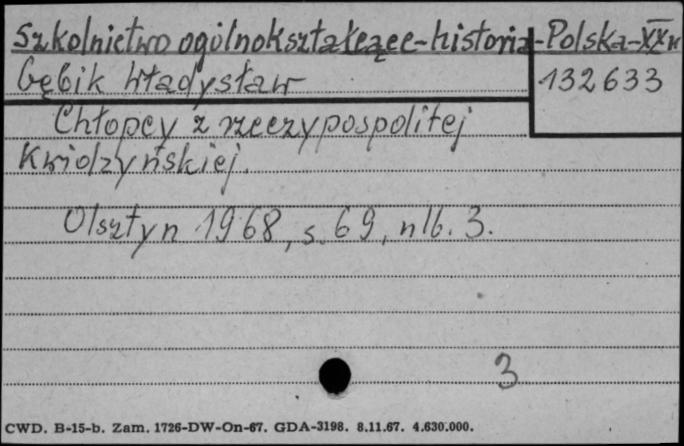 Szkolnictwo ogólnokształcące-historia-Polska-XX w
Gębik Władysław
132633
Chłopcy z rzeczypospolitej
Kwidzyńskiej.
Olsztyn 1968, s. 69, nlb. 3.
3
CWD. B-15-b. Zam. 1726-DW-On-67. GDA-3198. 8.11.67. 4.630.000.